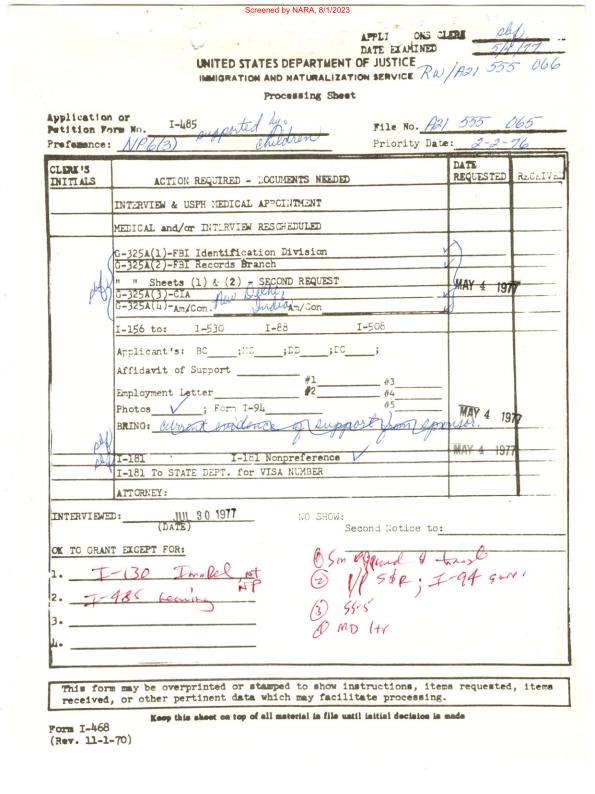 Screened by NARA, 8/1/2023
APPLI ONS CLERK pbf
DATE EXAMINED 5/4/77
UNITED STATES DEPARTMENT OF JUSTICE
IMMIGRATION AND NATURALIZATION SERVICE RW/A21 555 066
Processing Sheet
Application or
Petition Form No. I-485 supported by: File No. A21 555 065
Preference: NP6(3) children Priority Date: 2-2-76
CLERK'S INITIALS ACTION REQUIRED - DOCUMENTS NEEDED DATE REQUESTED RECEIVE
INTERVIEW & USPH MEDICAL APPOINTMENT
MEDICAL and/or INTERVIEW RESCHEDULED
G-325A(1)-FBI Identification Division
G-325A(2)-FBI Records Branch
" " Sheets (1) & (2) - SECOND REQUEST
pbf G-325A(3)-CIA MAY 4 1977
G-325A(4)-Am/Con. New Delhi, India Am/Con
I-156 to: I-530 I-88 I-508
Applicant's: BC ;MC ;DD ;DC ;
Affidavit of Support
#1 #3
Employment Letter #2 #4
Photos ✓ ; Form I-94 #5
BRING: current evidence of support from sponsor. MAY 4 1977
pbf
pbf I-181 I-181 Nonpreference ✓ MAY 4 1977
I-181 To STATE DEPT. for VISA NUMBER
ATTORNEY:
INTERVIEWED: JUN 30 1977 NO SHOW:
(DATE) Second Notice to:
OK TO GRANT EXCEPT FOR:
1. I-130 not NP
2. I-485
3.
4.
①
② ; I-94
③ SS-5
④ MD ltr
This form may be overprinted or stamped to show instructions, items requested, items
received, or other pertinent data which may facilitate processing.
Keep this sheet on top of all material in file until initial decision is made
Form I-468
(Rev. 11-1-70)